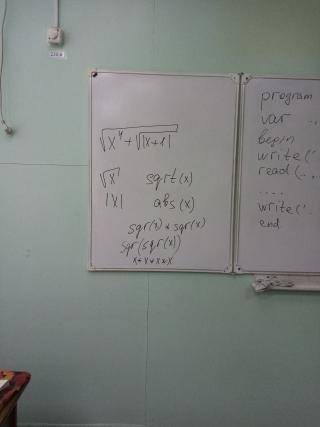 √x⁴+√|x+1|
√x sqrt(x)
|x| abs(x)
sqr(x)*sqr(x)
sqr(sqr(x))
x*x*x*x
program
var
begin
write('
read(
....
write('
end